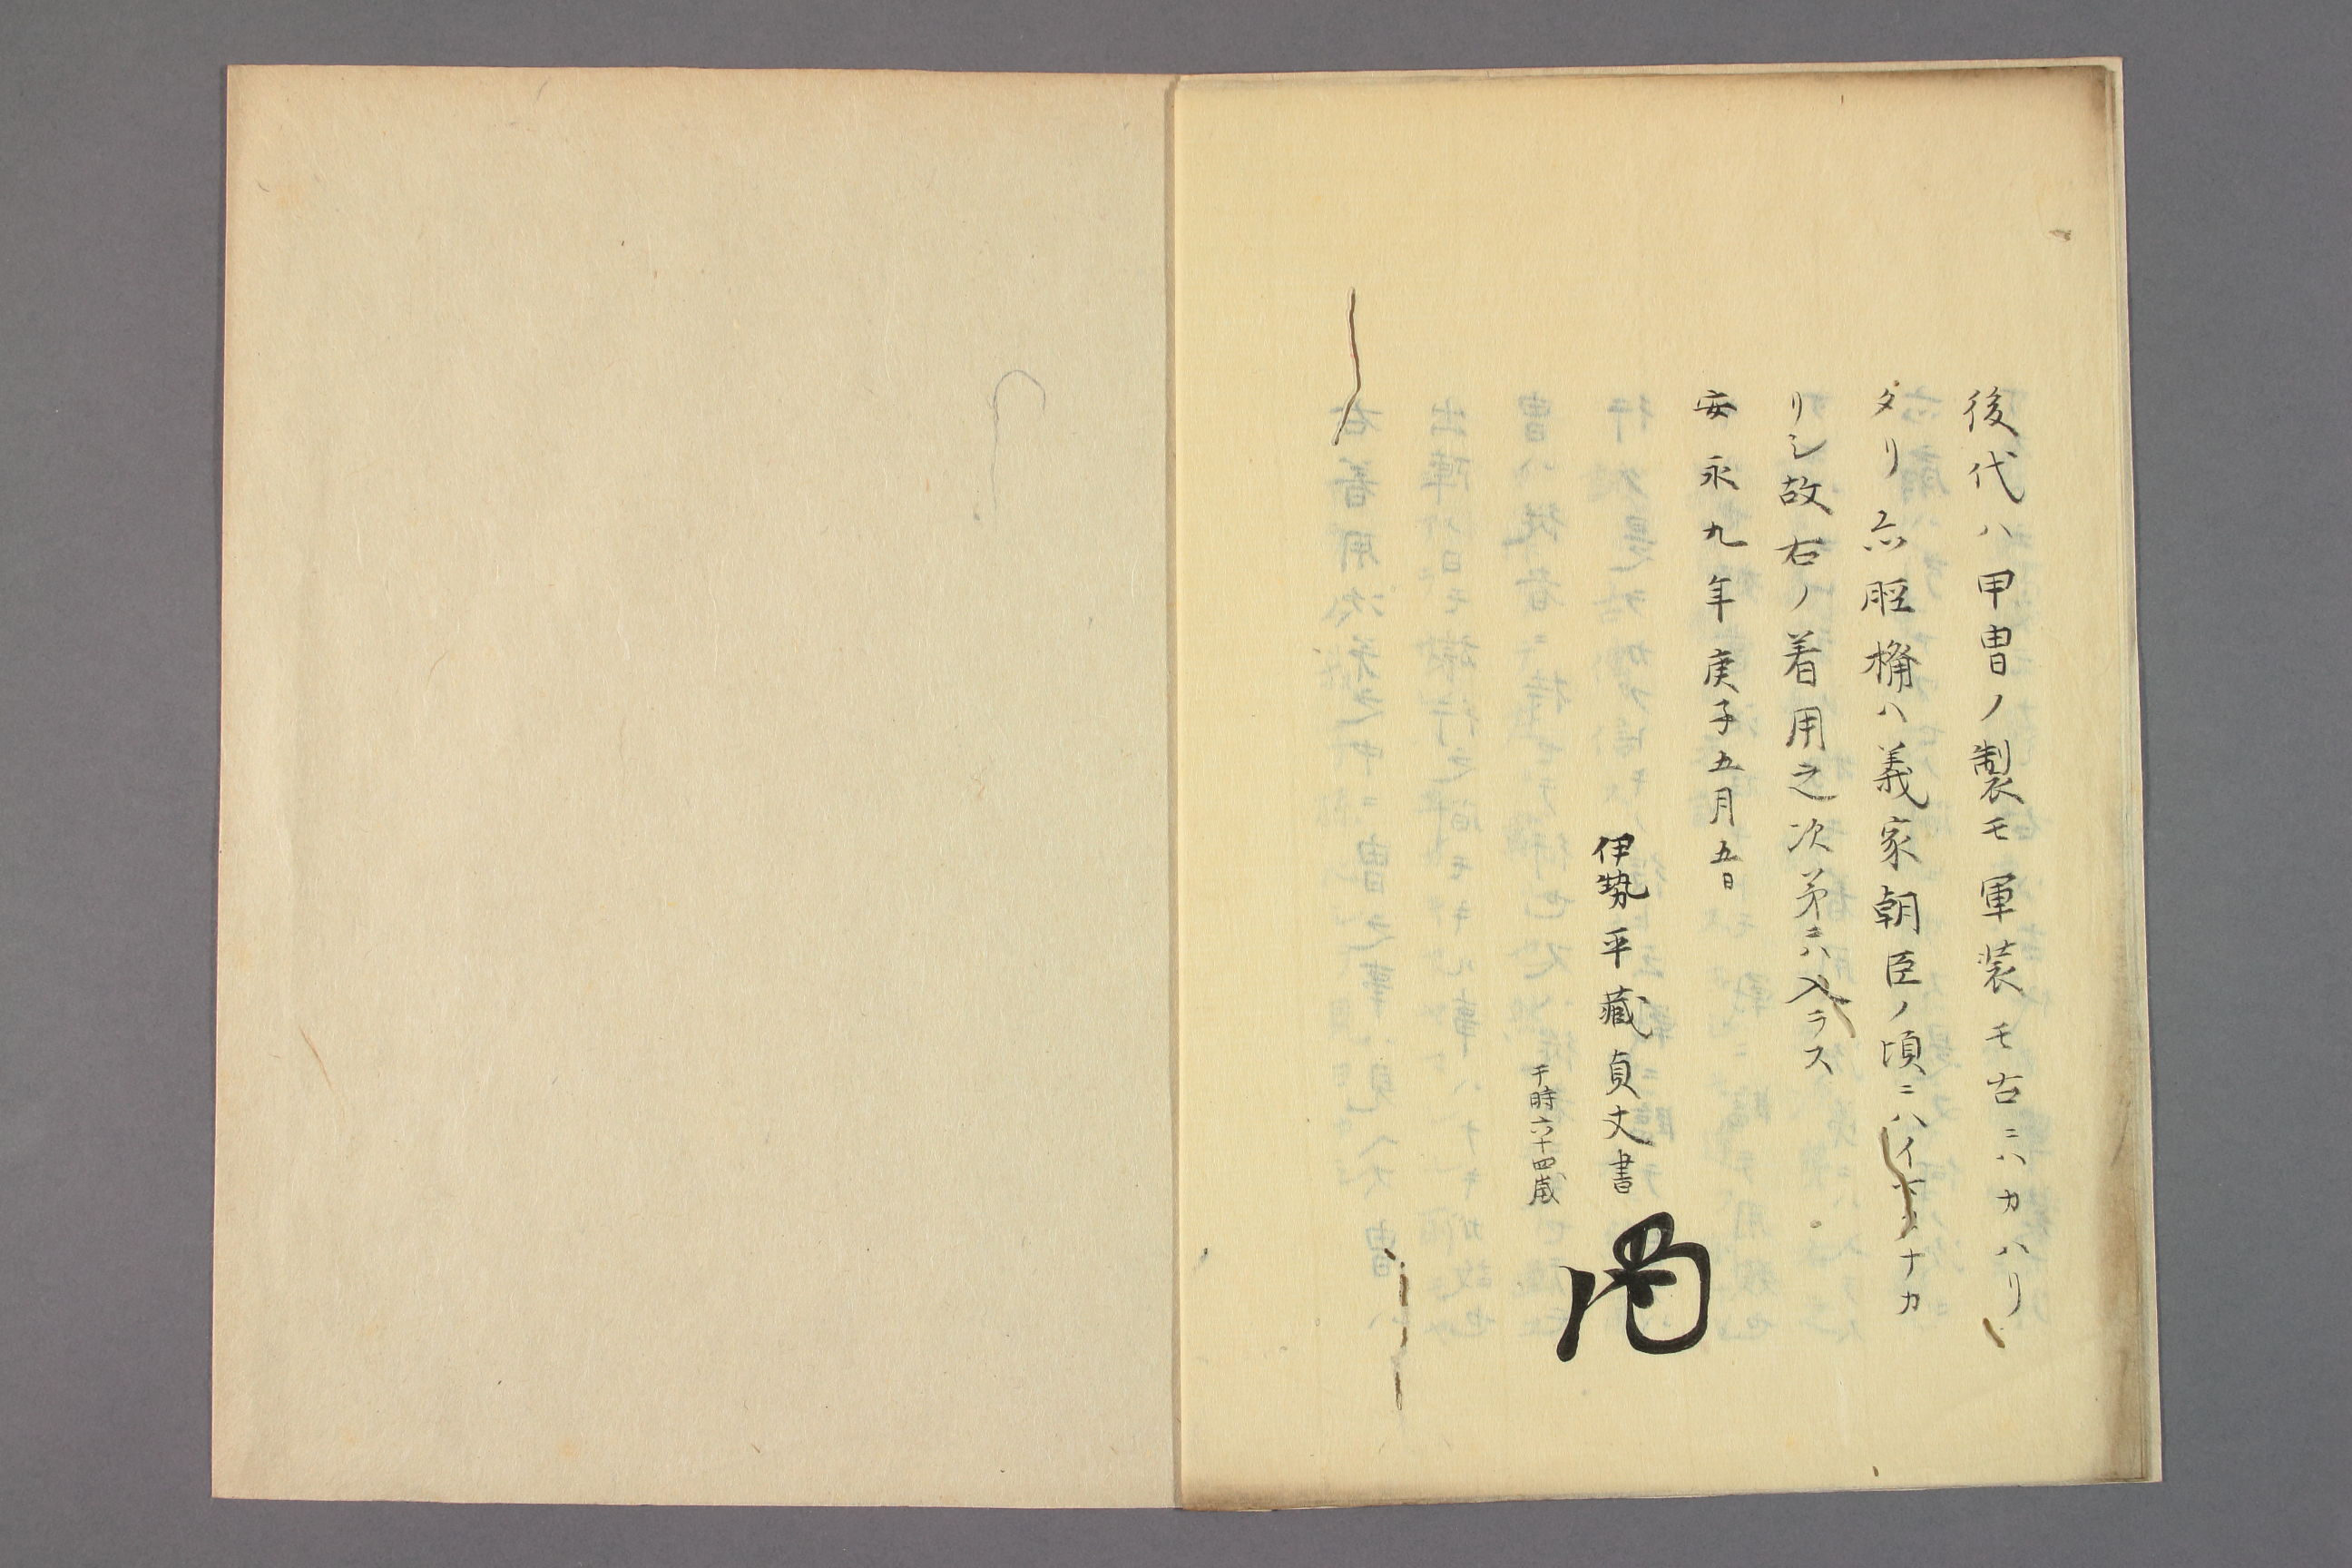 後代ハ甲冑ノ製モ軍装モ古ニハカハリ
タリ亦脛楯ハ義家朝臣ノ頃ニハイナカ
リシ故右ノ着用之次第ニハ入ラス
安永九年庚子五月五日
伊勢平藏貞丈書
于時六十四歳